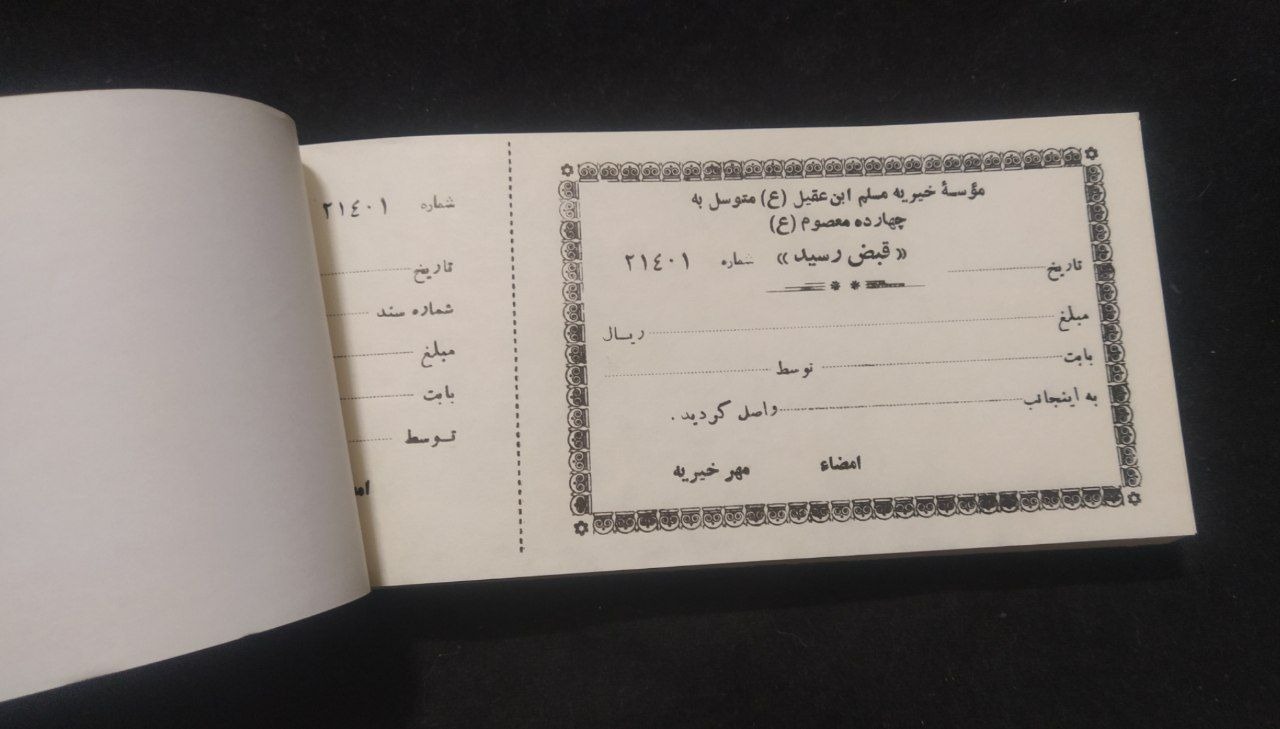 مؤسسهٔ خیریه مسلم ابن عقیل (ع) متوسل به
چهارده معصوم (ع)
تاریخ .......... « قبض رسید » شماره ٢١٤٠١
مبلغ .......... ریـال
بابت .......... توسط ..........
به اینجانب .......... واصل گردید .
امضاء مهر خیریه
شماره ٢١٤٠١
تاریخ ..........
شماره سند ..........
مبلغ ..........
بابت ..........
تـوسط ..........